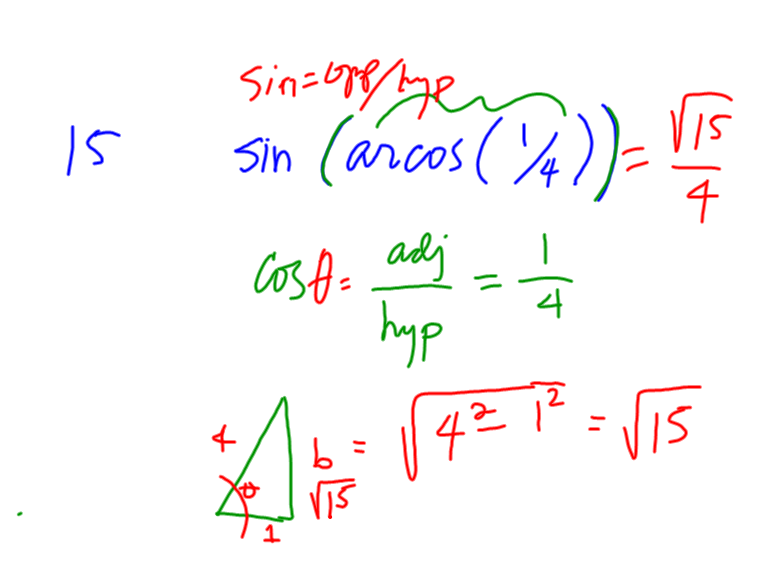 sin = opp/hyp
15 sin (arcos(1/4)) = √15/4
cosθ = adj/hyp = 1/4
4 θ 1 b = √(4² - 1²) = √15
√15